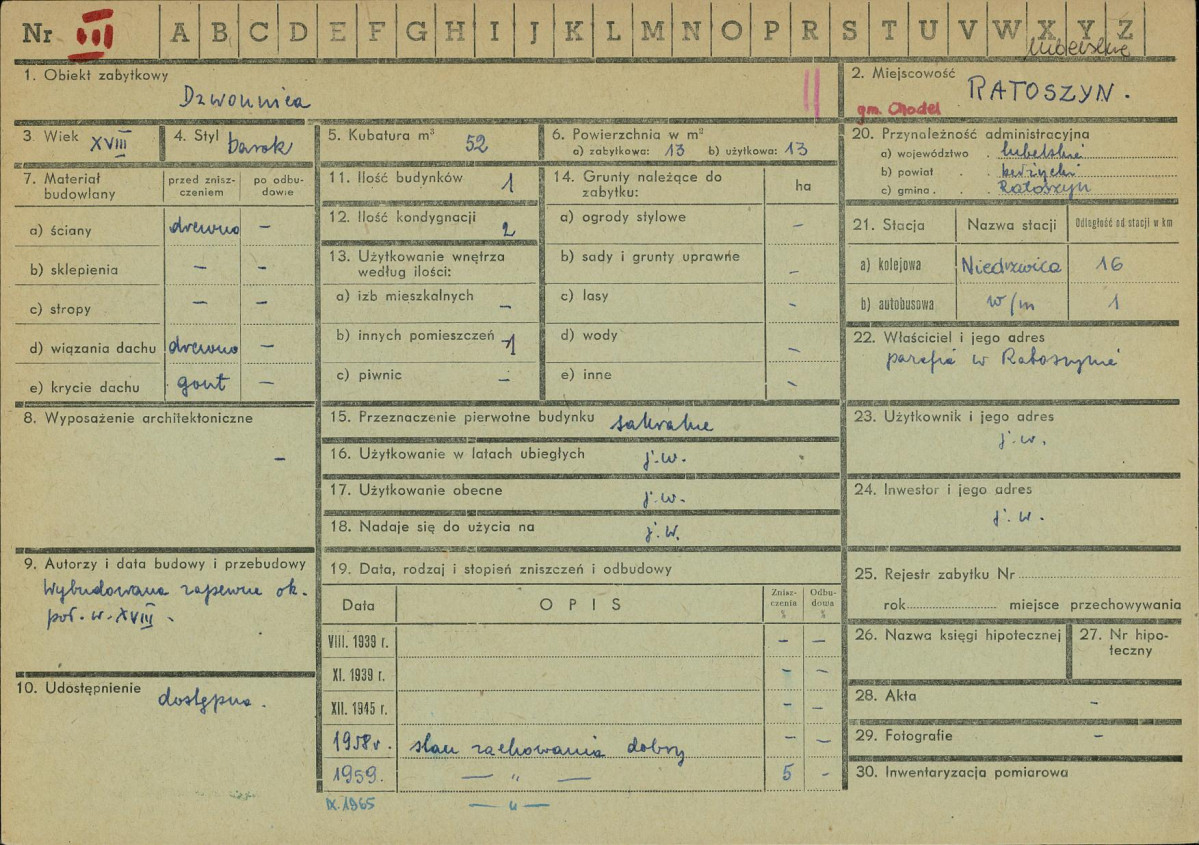 Nr III A B C D E F G H I J K L M N O P R S T U V W X Y Z
lubelskie
1. Obiekt zabytkowy
Dzwonnica
2. Miejscowość RATOSZYN.
gm. Chodel
3. Wiek XVIII
4. Styl barok
5. Kubatura m³ 52
6. Powierzchnia w m²
a) zabytkowa: 13 b) użytkowa: 13
20. Przynależność administracyjna
a) województwo . lubelskie
b) powiat . . bełżycki
c) gmina . . Ratoszyn
7. Materiał budowlany
przed znisz-
czeniem
po odbu-
dowie
a) ściany drewno –
b) sklepienia – –
c) stropy – –
d) wiązania dachu drewno –
e) krycie dachu gont –
11. Ilość budynków 1
12. Ilość kondygnacji 2
13. Użytkowanie wnętrza
według ilości:
a) izb mieszkalnych –
b) innych pomieszczeń 1
c) piwnic –
14. Grunty należące do
zabytku: ha
a) ogrody stylowe –
b) sady i grunty uprawne –
c) lasy –
d) wody –
e) inne –
21. Stacja Nazwa stacji Odległość od stacji w km
a) kolejowa Niedrzwica 16
b) autobusowa w/m 1
22. Właściciel i jego adres
parafia w Ratoszynie
8. Wyposażenie architektoniczne
–
15. Przeznaczenie pierwotne budynku sakralne
16. Użytkowanie w latach ubiegłych j.w.
17. Użytkowanie obecne j.w.
18. Nadaje się do użycia na j.w.
23. Użytkownik i jego adres
j.w.
24. Inwestor i jego adres
j.w.
9. Autorzy i data budowy i przebudowy
Wybudowana zapewne ok.
poł. w. XVIII.
10. Udostępnienie dostępna.
19. Data, rodzaj i stopień zniszczeń i odbudowy
Data OPIS
Znisz-
czenia
%
Odbu-
dowa
%
VIII. 1939 r. – –
XI. 1939 r. – –
XII. 1945 r. – –
1958 r. stan zachowania dobry – –
1959. — " — 5 –
IX. 1965 — " —
25. Rejestr zabytku Nr
rok miejsce przechowywania
26. Nazwa księgi hipotecznej
27. Nr hipo-
teczny
28. Akta –
29. Fotografie –
30. Inwentaryzacja pomiarowa